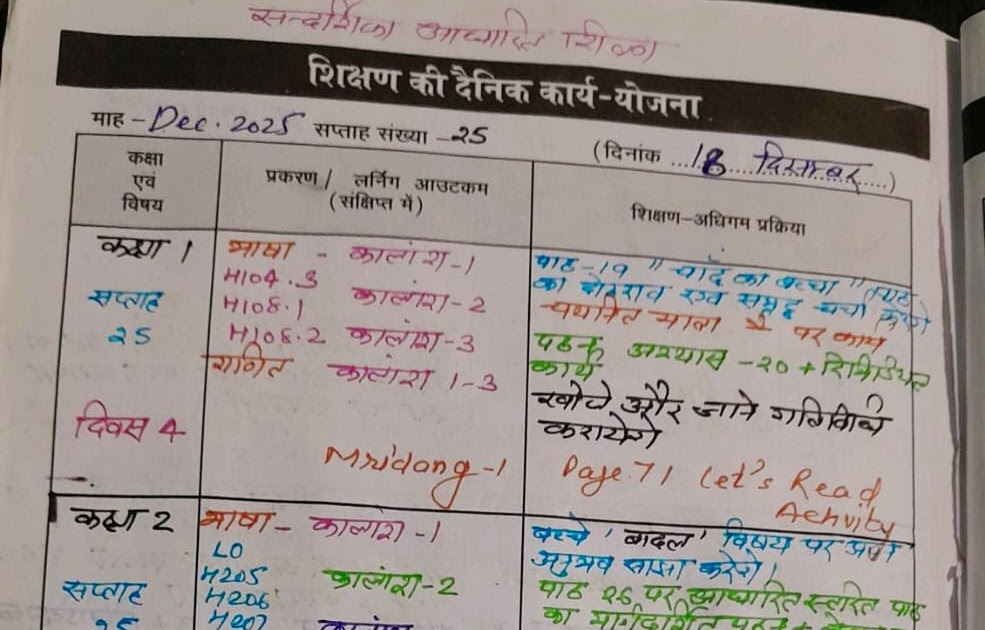 सन्दर्शिका आधारित शिक्षा
शिक्षण की दैनिक कार्य-योजना
माह - Dec. 2025 सप्ताह संख्या - 25
(दिनांक ...18 दिसम्बर....)
कक्षा एवं विषय
प्रकरण / लर्निंग आउटकम (संक्षिप्त में)
शिक्षण-अधिगम प्रक्रिया
कक्षा 1
सप्ताह
25
दिवस 4
भाषा - कालांश-1
H104.3
कालांश-2
H108.1
H108.2 कालांश-3
गणित कालांश 1-3
Mridang-1
पाठ-19 "चाँद का बच्चा"
का दोहराव एवं समूह चर्चा करेंगे
पर कार्य
पठन अभ्यास -20 + रिमिडियल
कार्य
खोजे और जाने गतिविधि
करायेंगे
Page 71 Let's Read
Activity
कक्षा 2
सप्ताह
25
भाषा - कालांश-1
LO
H205
कालांश-2
H206
H207
कालांश
बच्चे 'बादल' विषय पर अपने
अनुभव साझा करेंगे।
पाठ 26 पर आधारित स्तरित पाठ
का मार्गदर्शित पठन +